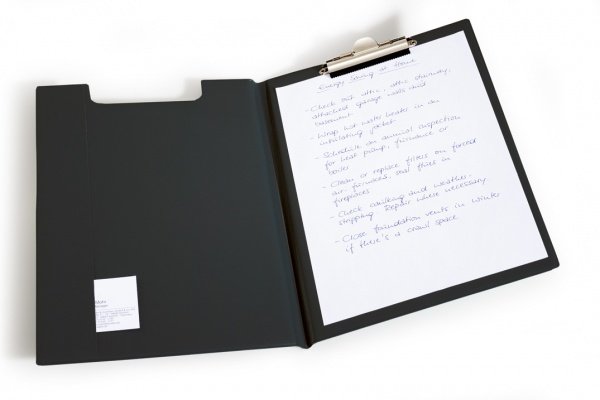 Energy Saving at Home
- Check out attic, attic stairway,
attached garage walls and
basement
- Wrap hot water heater in an
insulating jacket
- Schedule an annual inspection
for heat pump, furnance or
boiler
- Clean or replace filters on forced
air furnaces, seal flues in
fireplaces
- Check caulking and weather-
stripping. Repair where necessary
- Close foundation vents in Winter
if there's a crawl space